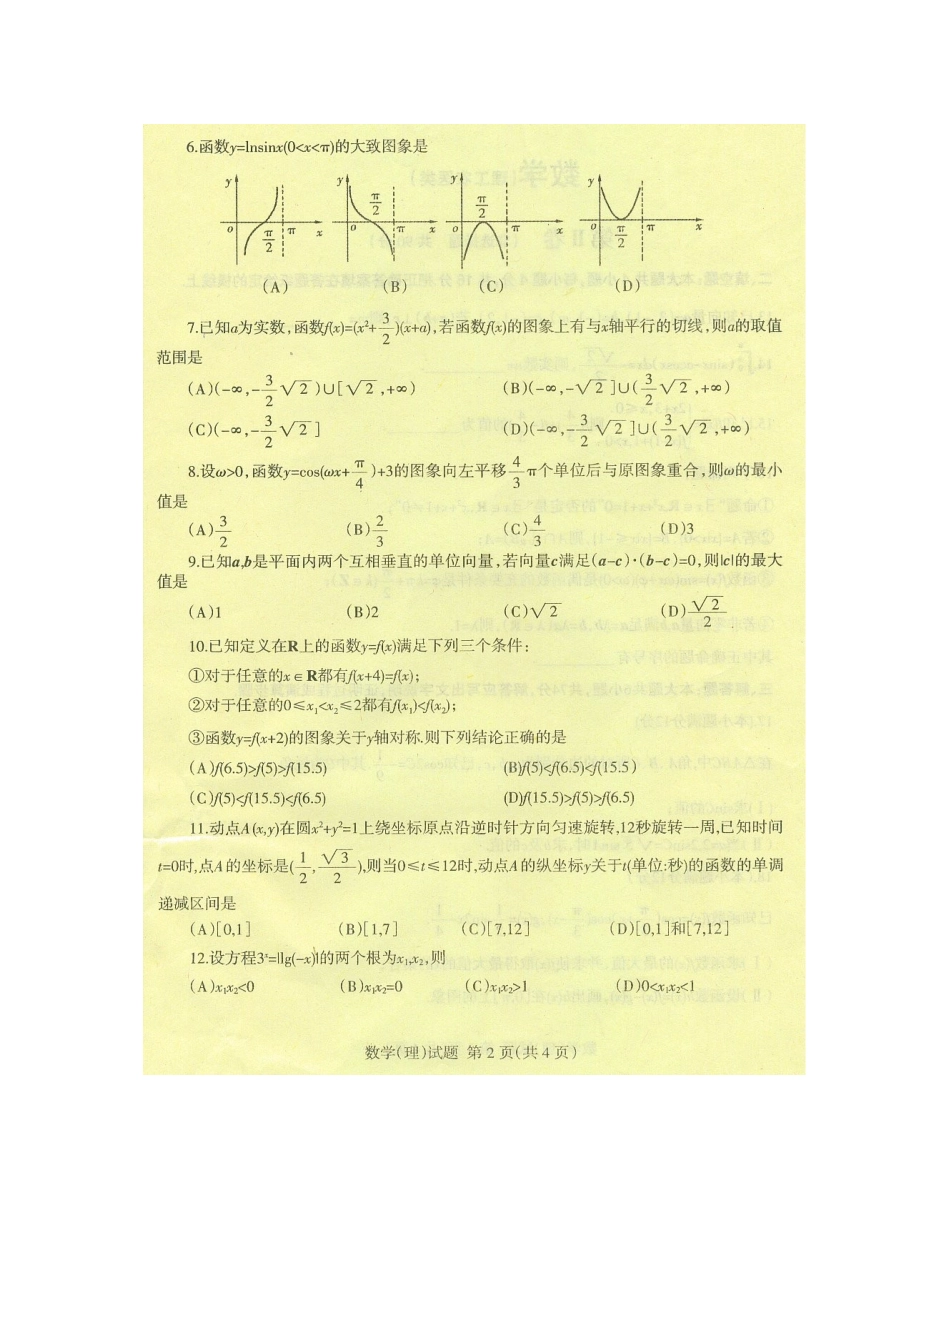 6.函数y=lnsinx(0<x<π)的大致图象是
y y y y
π/2 π/2
o π x o π x o π x o π x
π/2 π/2
(A) (B) (C) (D)
7.已知a为实数,函数f(x)=(x²+3/2)(x+a),若函数f(x)的图象上有与x轴平行的切线,则a的取值
范围是
(A)(-∞,-3/2√2)∪[√2,+∞) (B)(-∞,-√2]∪(3/2√2,+∞)
(C)(-∞,-3/2√2] (D)(-∞,-3/2√2]∪(3/2√2,+∞)
8.设ω>0,函数y=cos(ωx+π/4)+3的图象向左平移4/3π个单位后与原图象重合,则ω的最小
值是
(A)3/2 (B)2/3 (C)4/3 (D)3
9.已知a,b是平面内两个互相垂直的单位向量,若向量c满足(a-c)·(b-c)=0,则|c|的最大
值是
(A)1 (B)2 (C)√2 (D)√2/2
10.已知定义在R上的函数y=f(x)满足下列三个条件:
①对于任意的x∈R都有f(x+4)=f(x);
②对于任意的0≤x₁<x₂≤2都有f(x₁)<f(x₂);
③函数y=f(x+2)的图象关于y轴对称.则下列结论正确的是
(A)f(6.5)>f(5)>f(15.5) (B)f(5)<f(6.5)<f(15.5)
(C)f(5)<f(15.5)<f(6.5) (D)f(15.5)>f(5)>f(6.5)
11.动点A(x,y)在圆x²+y²=1上绕坐标原点沿逆时针方向匀速旋转,12秒旋转一周,已知时间
t=0时,点A的坐标是(1/2,√3/2),则当0≤t≤12时,动点A的纵坐标y关于t(单位:秒)的函数的单调
递减区间是
(A)[0,1] (B)[1,7] (C)[7,12] (D)[0,1]和[7,12]
12.设方程3ˣ=|lg(-x)|的两个根为x₁,x₂,则
(A)x₁x₂<0 (B)x₁x₂=0 (C)x₁x₂>1 (D)0<x₁x₂<1
数学(理)试题 第2页(共4页)